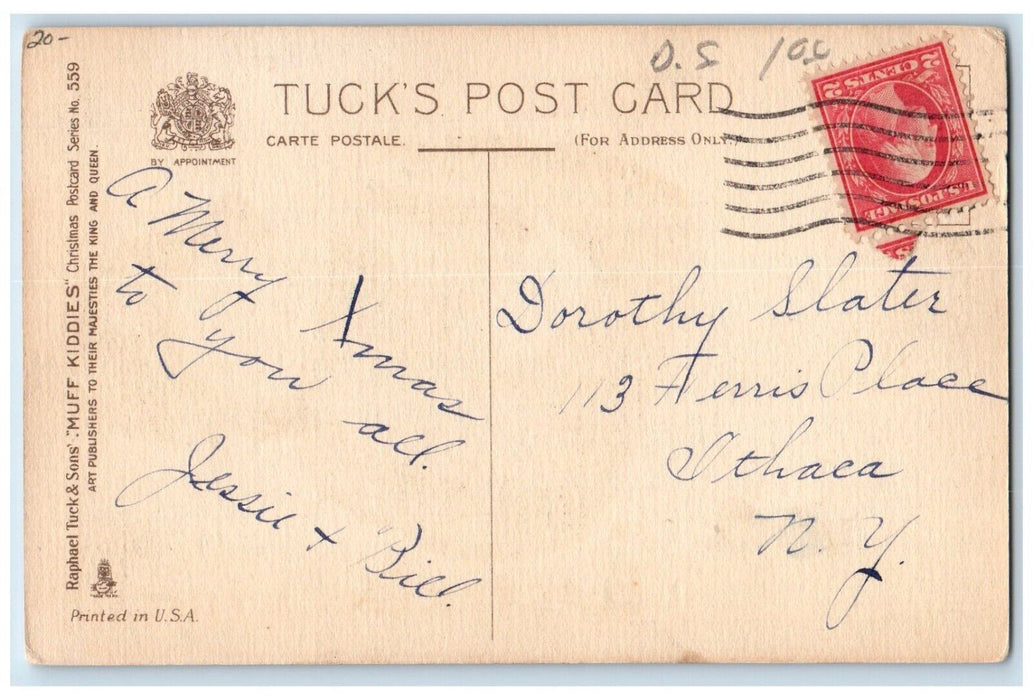 20-
D.S
TUCK'S POST CARD
CARTE POSTALE.
(FOR ADDRESS ONLY.)
BY APPOINTMENT
2 CENTS 2
U.S. POSTAGE
Raphael Tuck & Sons' "MUFF KIDDIES" Christmas Postcard Series No. 559
ART PUBLISHERS TO THEIR MAJESTIES THE KING AND QUEEN
A Merry Xmas
to you all.
Jessie + Bill.
Dorothy Slater
113 Ferris Place
Ithaca
N. Y.
Printed in U.S.A.